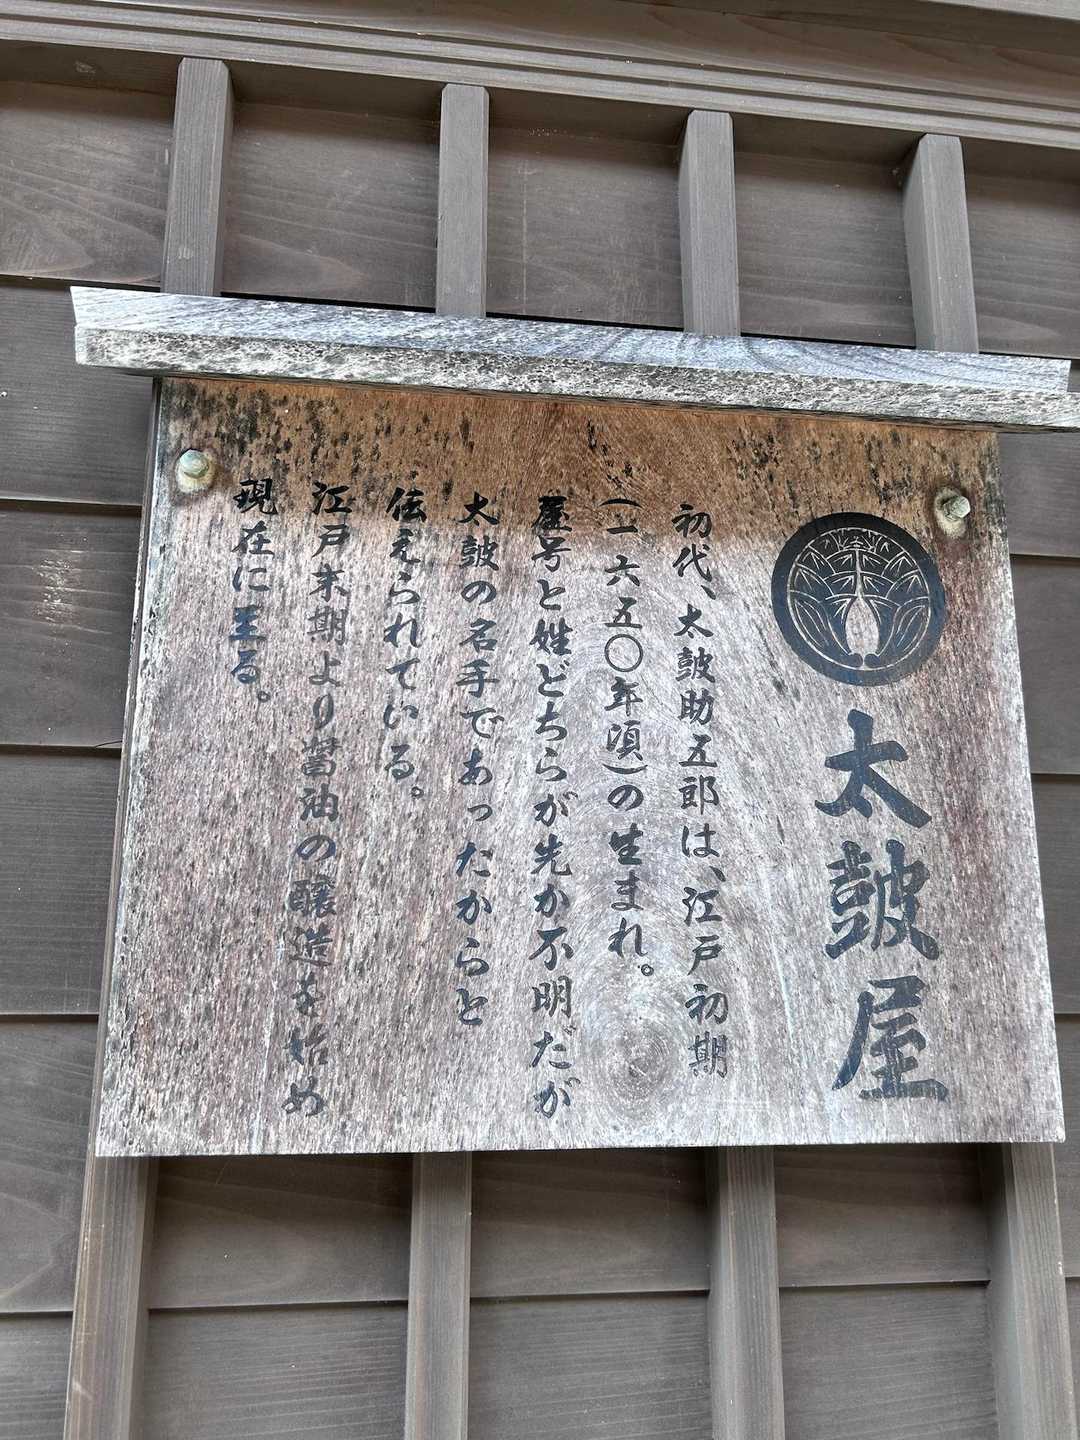 太鼓屋
初代、太鼓助五郎は、江戸初期
(一六五〇年頃)の生まれ。
屋号と姓どちらが先か不明だが
太鼓の名手であったからと
伝えられている。
江戸末期より醤油の醸造を始め
現在に至る。